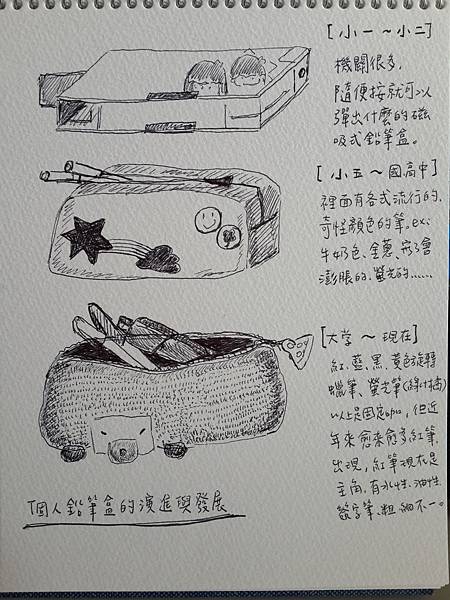 [小一～小二]
機關很多,
隨便按就可以
彈出什麼的磁
吸式鉛筆盒。
[小五～國高中]
裡面有各式流行的、
奇怪顏色的筆。ex:
牛奶色、金蔥、寫了會
澎脹的、螢光的……
[大学～現在]
紅、藍、黑、黃色旋轉
蠟筆、螢光筆(綠+橘)
以上是固定咖,但近
年來愈來愈多紅筆
出現,紅筆現在是
主角,有水性、油性、
簽字筆、粗細不一。
個人鉛筆盒的演進與發展